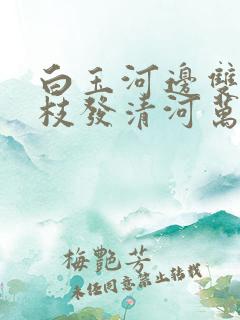 白玉河邊雙
枝發清河萬
梅艷芳
未經同意禁止轉載